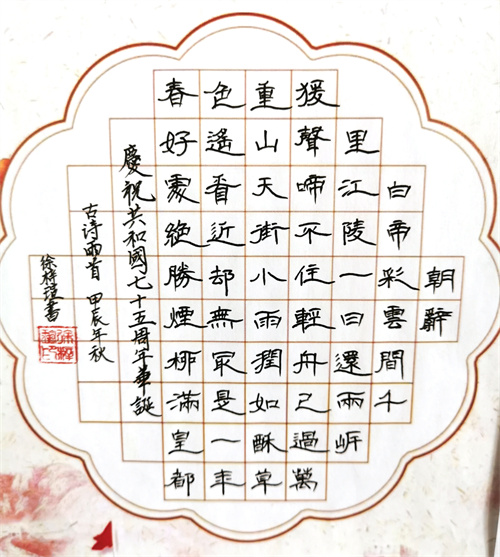 朝辭
白帝彩雲間千
里江陵一日還兩岍
猨聲啼不住輕舟已過萬
重山天街小雨潤如酥草
色遙看近却無冣是一年
春好處絕勝煙柳滿皇都
慶祝共和國七十五周年華誕
古诗兩首 甲辰年秋
徐梓書